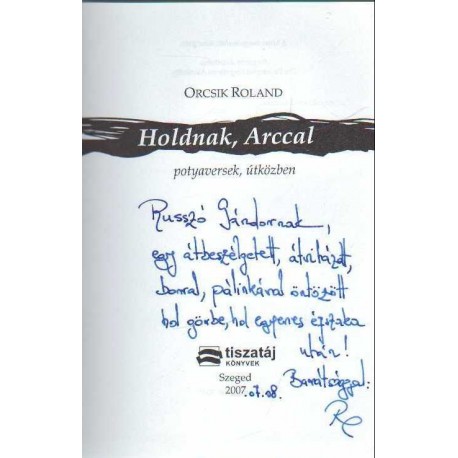 ORCSIK ROLAND
Holdnak, Arccal
potyaversek, útközben
Russzó Sándornak,
egy átbeszélgetett, átvitázott,
borral, pálinkával öntözött
hol görbe, hol egyenes éjszaka
után!
Barátsággal:
tiszatáj
KÖNYVEK
Szeged
2007.07.08.